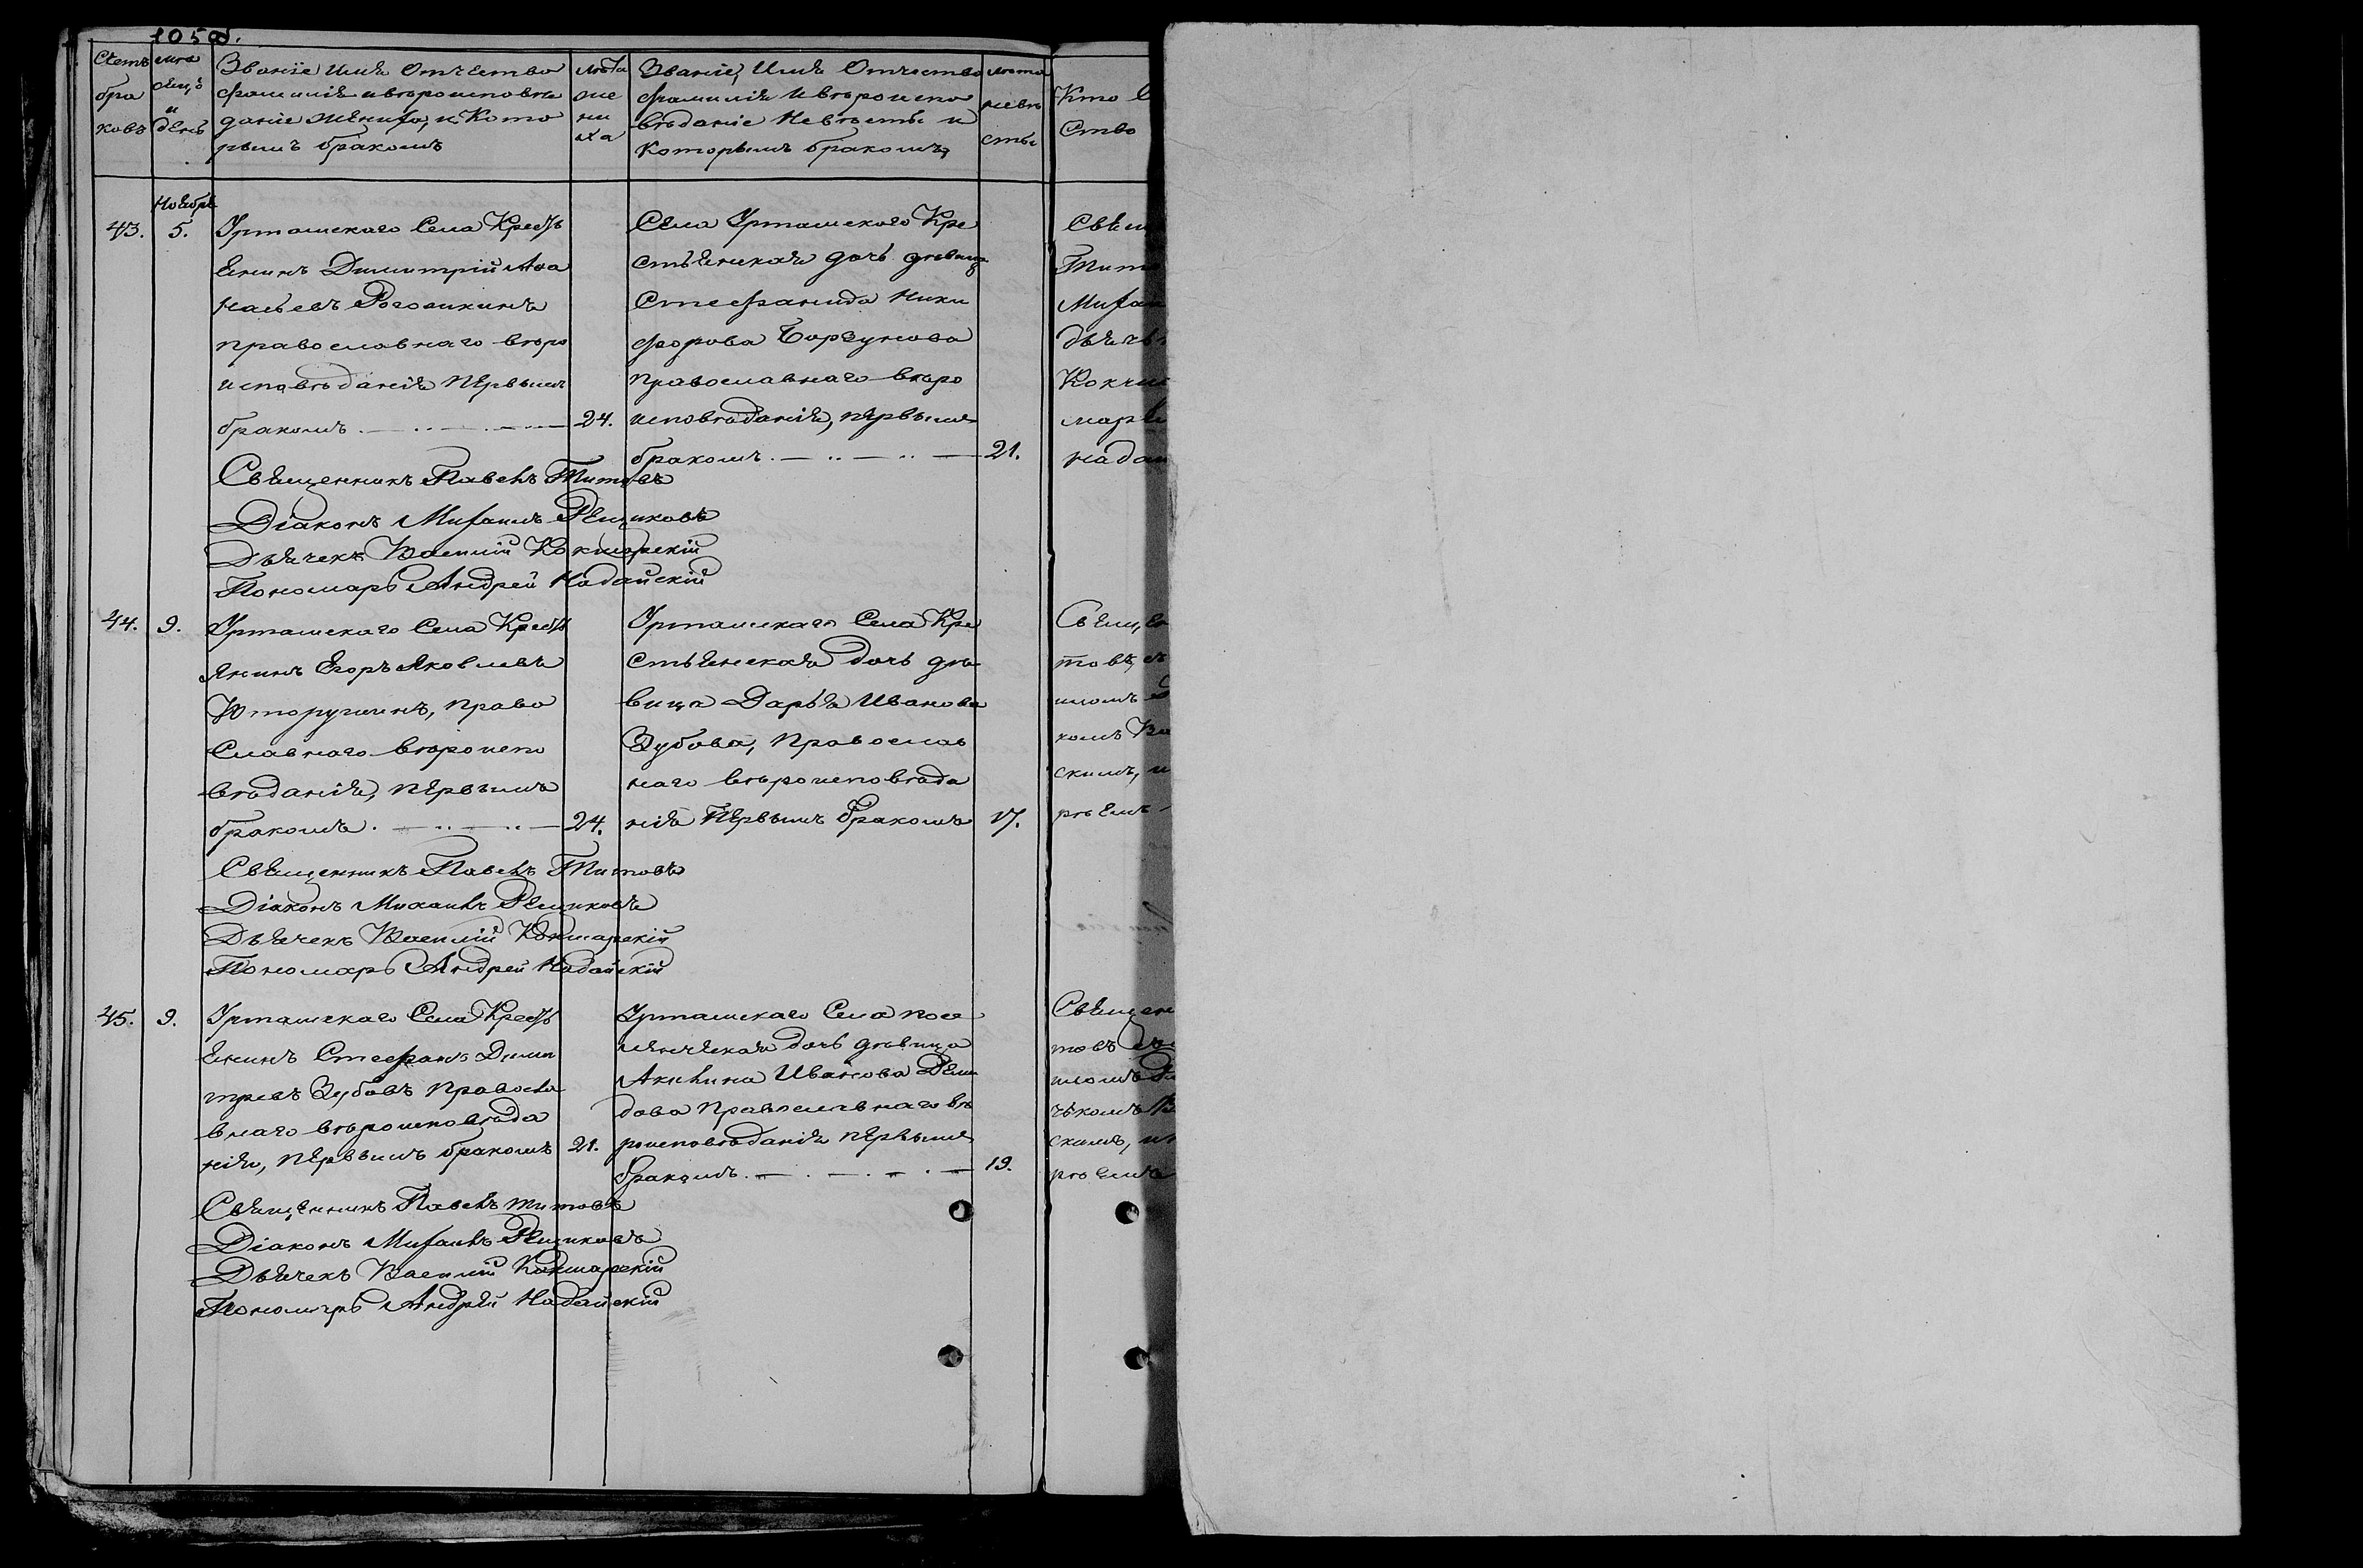 105 об.
Счетъ бра ковъ
Мѣсяцъ и день
Званіе имя Отчество
фамилія и вѣроисповѣ
даніе жениха, и Кото
рымъ бракомъ
Лѣта же ни ха
Званіе, Имя Отчество
фамилія и вѣроиспо
вѣданіе Невѣсты и
Которымъ бракомъ,
Лѣта невѣ сты
Кто
Ство
Ноября
43. 5.
Урташскаго Села Крестъ
янинъ Димитрій Афа
насьевъ Рогожкинъ
православнаго вѣро
исповѣданія первымъ
бракомъ 24.
Села Урташскаго Кре
стьянская дочь дѣвица
Стефанида Ники
форова Борзунова
православнаго вѣро
исповѣданія, первымъ
бракомъ 21.
Свящ
Тит
Михаи
дьяч
Кокш
мар
надай
Священникъ Павелъ Титовъ
Діаконъ Михаилъ Рещиковъ
Дьячекъ Василій Кокшарскій
Пономарь Андрей Надайскій
44. 9.
Урташскаго Села Кресть
янинъ Егоръ Яковлевъ
право
славнаго вѣроиспо
вѣданія, первымъ
бракомъ 24.
Урташскаго Села Кре
стьянская дочь дѣ
вица Дарья Иванова
Зубова, Православ
наго вѣроисповѣда
нія Первымъ Бракомъ 17.
Свящ
товъ, съ
иломъ
комъ Ва
скимъ, и
реемъ
Священникъ Павелъ Титовъ
Діаконъ Михаилъ Рещиковъ
Дьячекъ Василій Кокшарскій
Пономарь Андрей Надайскій
45. 9.
Урташскаго Села Кресть
янинъ Стефанъ Дими
тревъ Зубовъ Правосла
внаго вѣроисповѣда
нія, первымъ бракомъ 21.
Урташскаго Села посе
ленческая дочь дѣвица
Акилина Иванова Деми
дова Православнаго вѣ
роисповѣданія первымъ
бракомъ 19.
Священ
товъ съ
иломъ
чкомъ В
скимъ, и
реемъ
Священникъ Павелъ Титовъ
Діаконъ Михаилъ Рещиковъ
Дьячекъ Василій Кокшарскій
Пономарь Андрей Надайскій